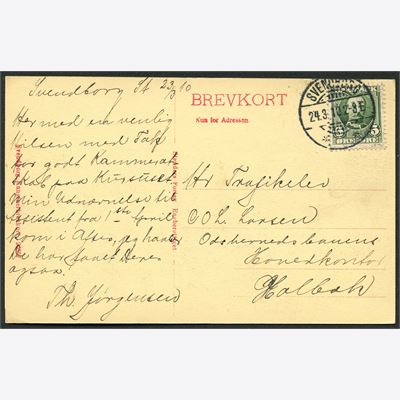 Svendborg St 23/3 10
Her med en venlig
Hilsen med Tak
for godt Kammerat
skab paa Kursuset
Min Udnævnelse til
Assistent fra 1ste April
kom i Aftes, jeg haaber
De har faaet Deres
ogsaa.
Th. Jørgensen
BREVKORT
Kun for Adressen.
SVENDBORG
24.3.10
5
Hr Trafikelev
C O L. Larsen
Odsherredsbanens
Hovedkontor
Holbæk